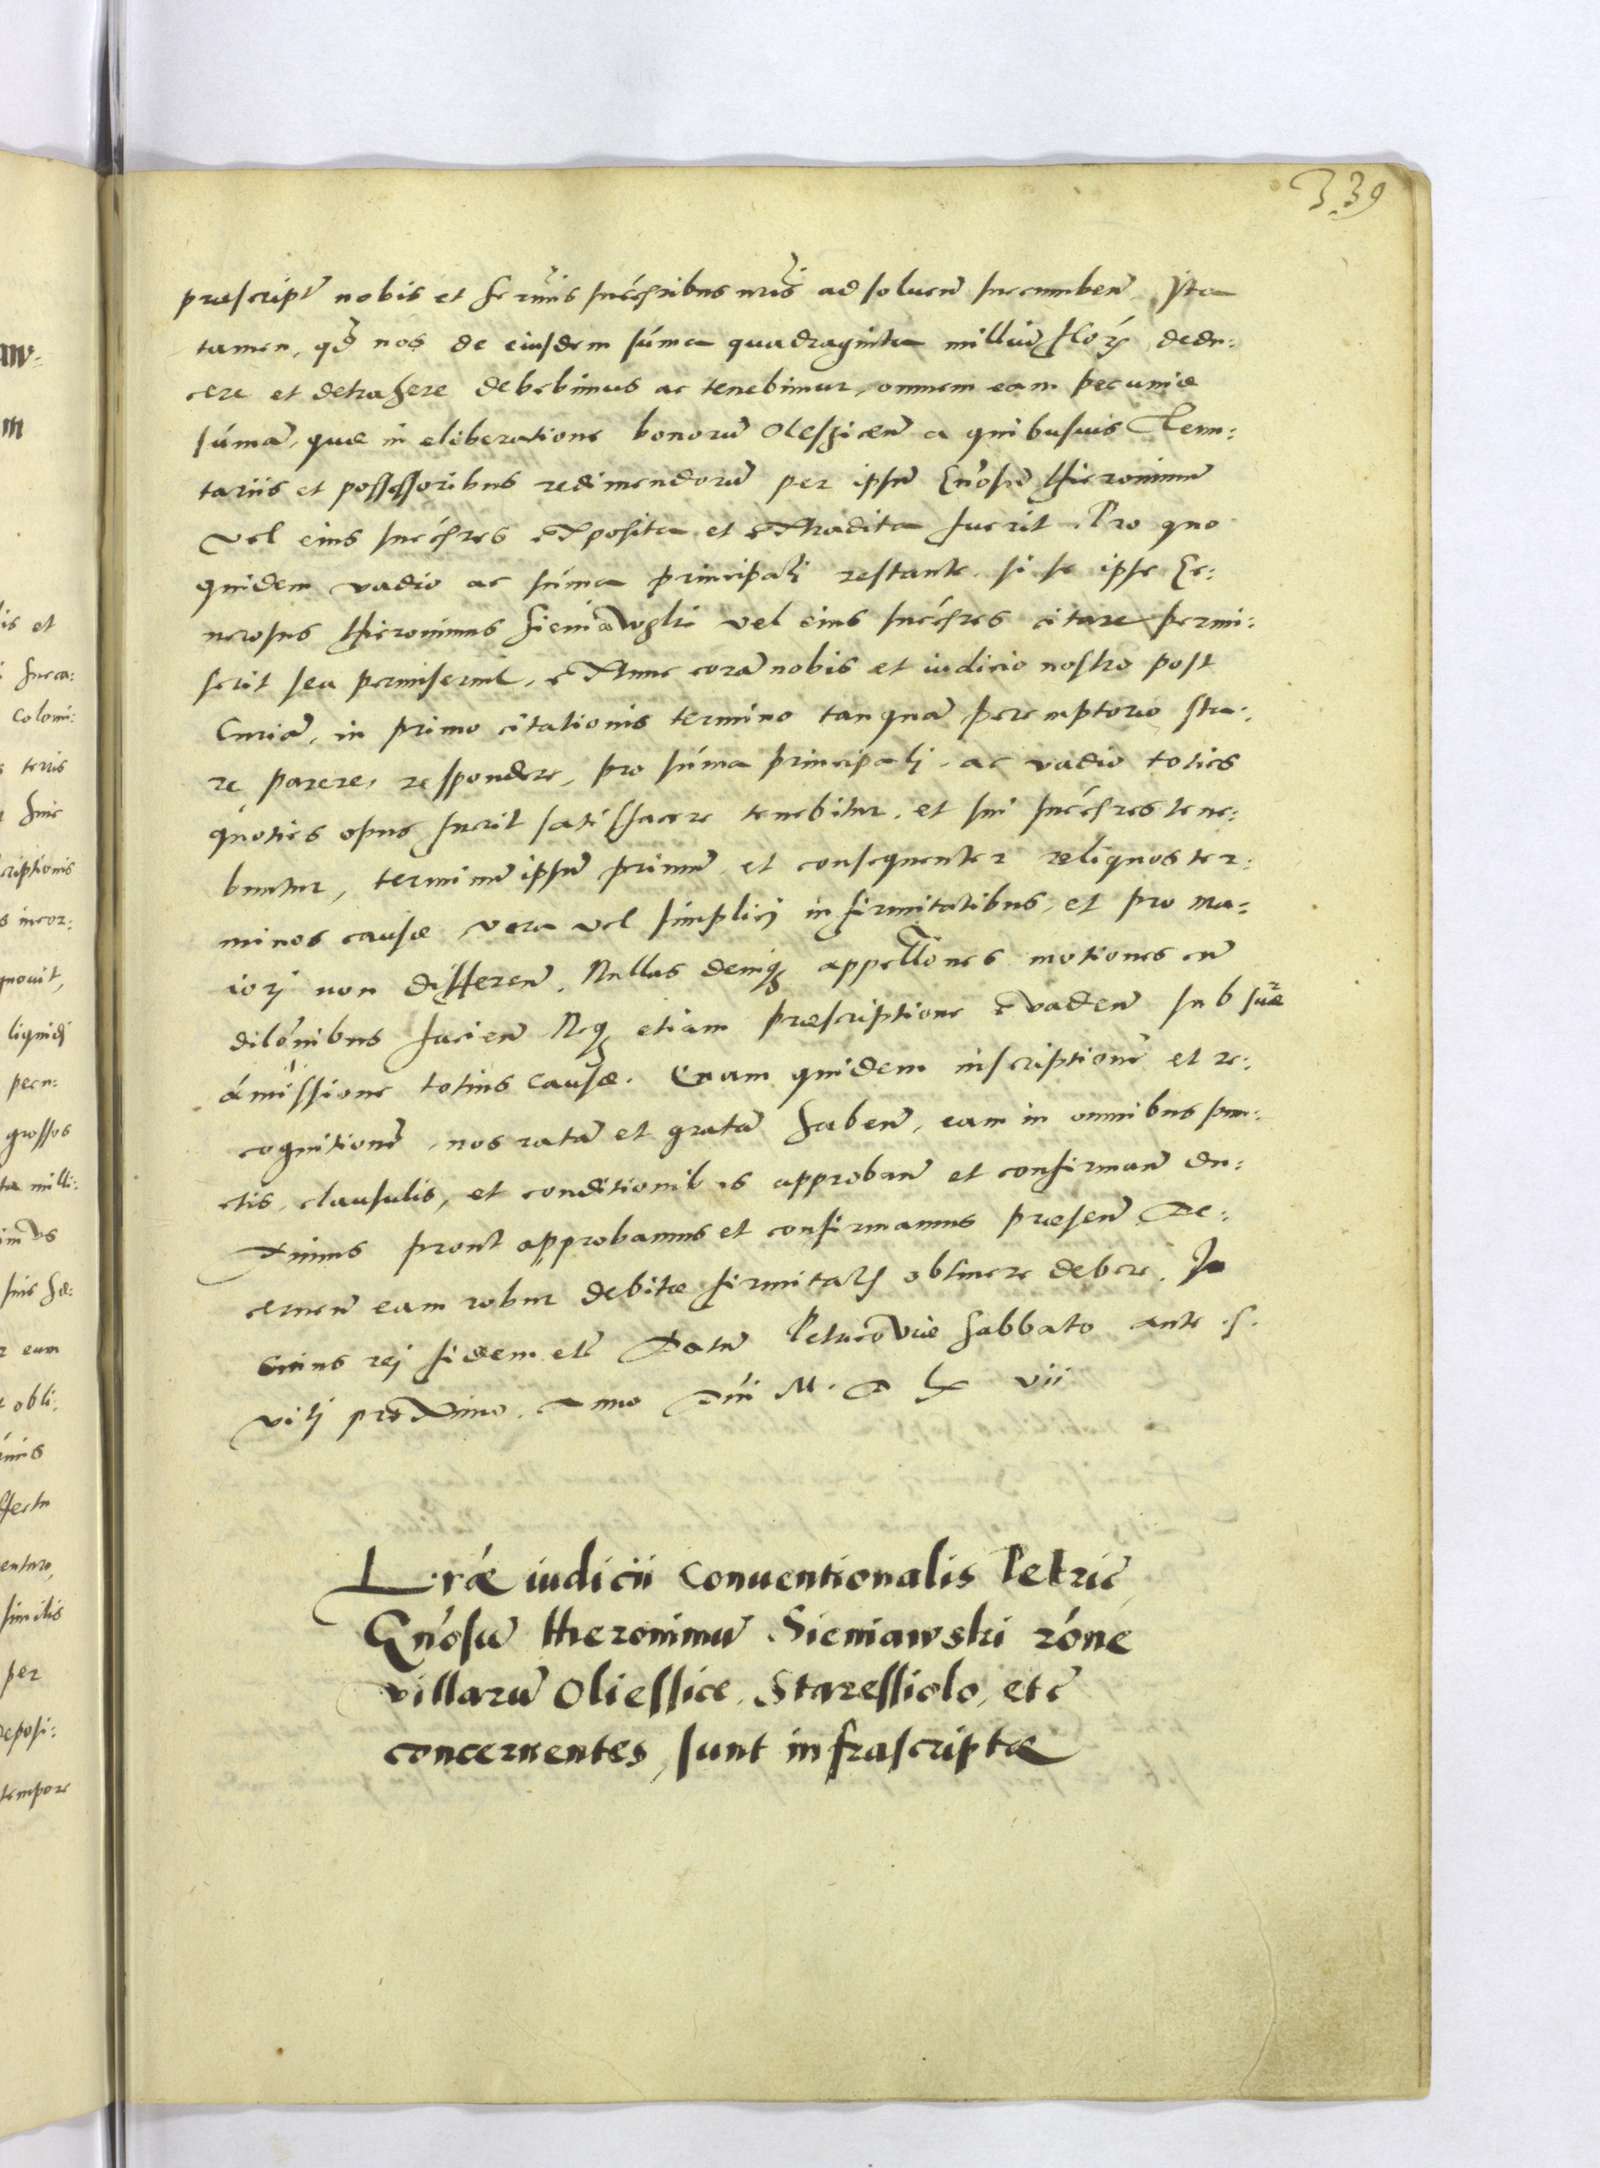 339
præscript nobis et sermis succribus nris ad soluen incumben. Ita
tamen, qd nos de eiusdem suma quadraginta milliu flor dedu:
cere et detrahere debebimus ac tenebimur, omnem eam pecuniæ
sumam, quæ in eliberatione bonoru Oleszicen a quibusuis Tenu:
tariis et possessoribus redimendoru per ipsu Gnosu Hieronimu
vel eius succres exposita et extradita fuerit. Pro quo
quidem vadio ac suma principali restante si se ipse Ge:
nerosus Hieronimus Sieniawski vel eius succres citare permi:
serit seu permiserint, extunc cora nobis et iudicio nostro post
Curia, in primo citationis termino tanqua peremptorio sta:
re parere, respondere, pro suma principali ac vadio toties
quoties opus fuerit satisfacere tenebitur, et sui succres tene:
buntur, terminu ipsu primu et consequenter reliquos ter:
minos causæ vera vel simplici infirmitatibus, et pro ma:
iori non differen. Nullas deniq appellones motiones cu
dilonibus facien Neq etiam præscriptione evaden sub suæ
amissione totius causæ. Quam quidem inscriptione et re:
cognitione, nos rata et grata haben, eam in omnibus pun:
ctis, clausulis, et conditionibus approban et confirman du:
ximus prout approbamus et confirmamus præsen De:
cernen eam robur debitæ firmitatis obtinere debere. In
cuius rej fidem etc Datu Petricoviæ sabbato ante .S.
Viti proximo. anno Dni M. D Lx vii
Lræ iudicii Conuentionalis Petric
Gnosu Hieronimu Sieniawski rone
villaru Oliessice, Staressiolo, etc
concernentes, sunt infrascriptæ
is et
Colomi:
terris
criptionis
s incor:
gnouit,
liquidj
pecu:
grossos
milli:
eum
obli:
similis
per
deposi:
tempore